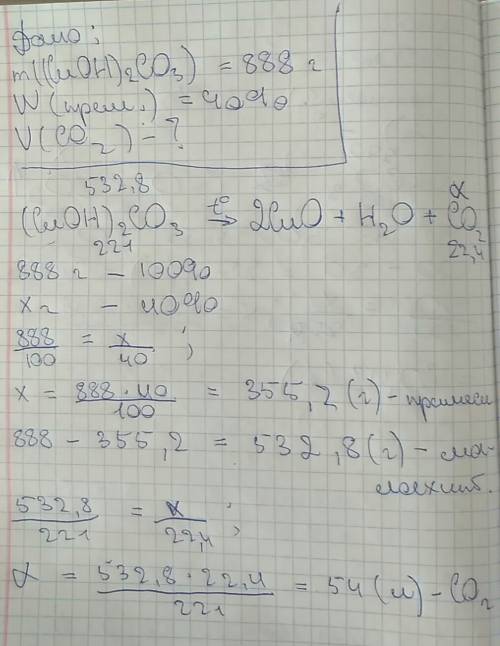 Дано:
m((CuOH)₂CO₃) = 888 г
W(прим.) = 40%
V(CO₂) - ?
532,8 x
(CuOH)₂CO₃ t°→ 2CuO + H₂O + CO₂
221 22,4
888 г - 100%
x г - 40%
888/100 = x/40 ;
x = 888·40/100 = 355,2 (г) - примеси
888 - 355,2 = 532,8 (г) - ма-
лахит.
532,8/221 = x/22,4 ;
x = 532,8·22,4/221 = 54 (л) - CO₂